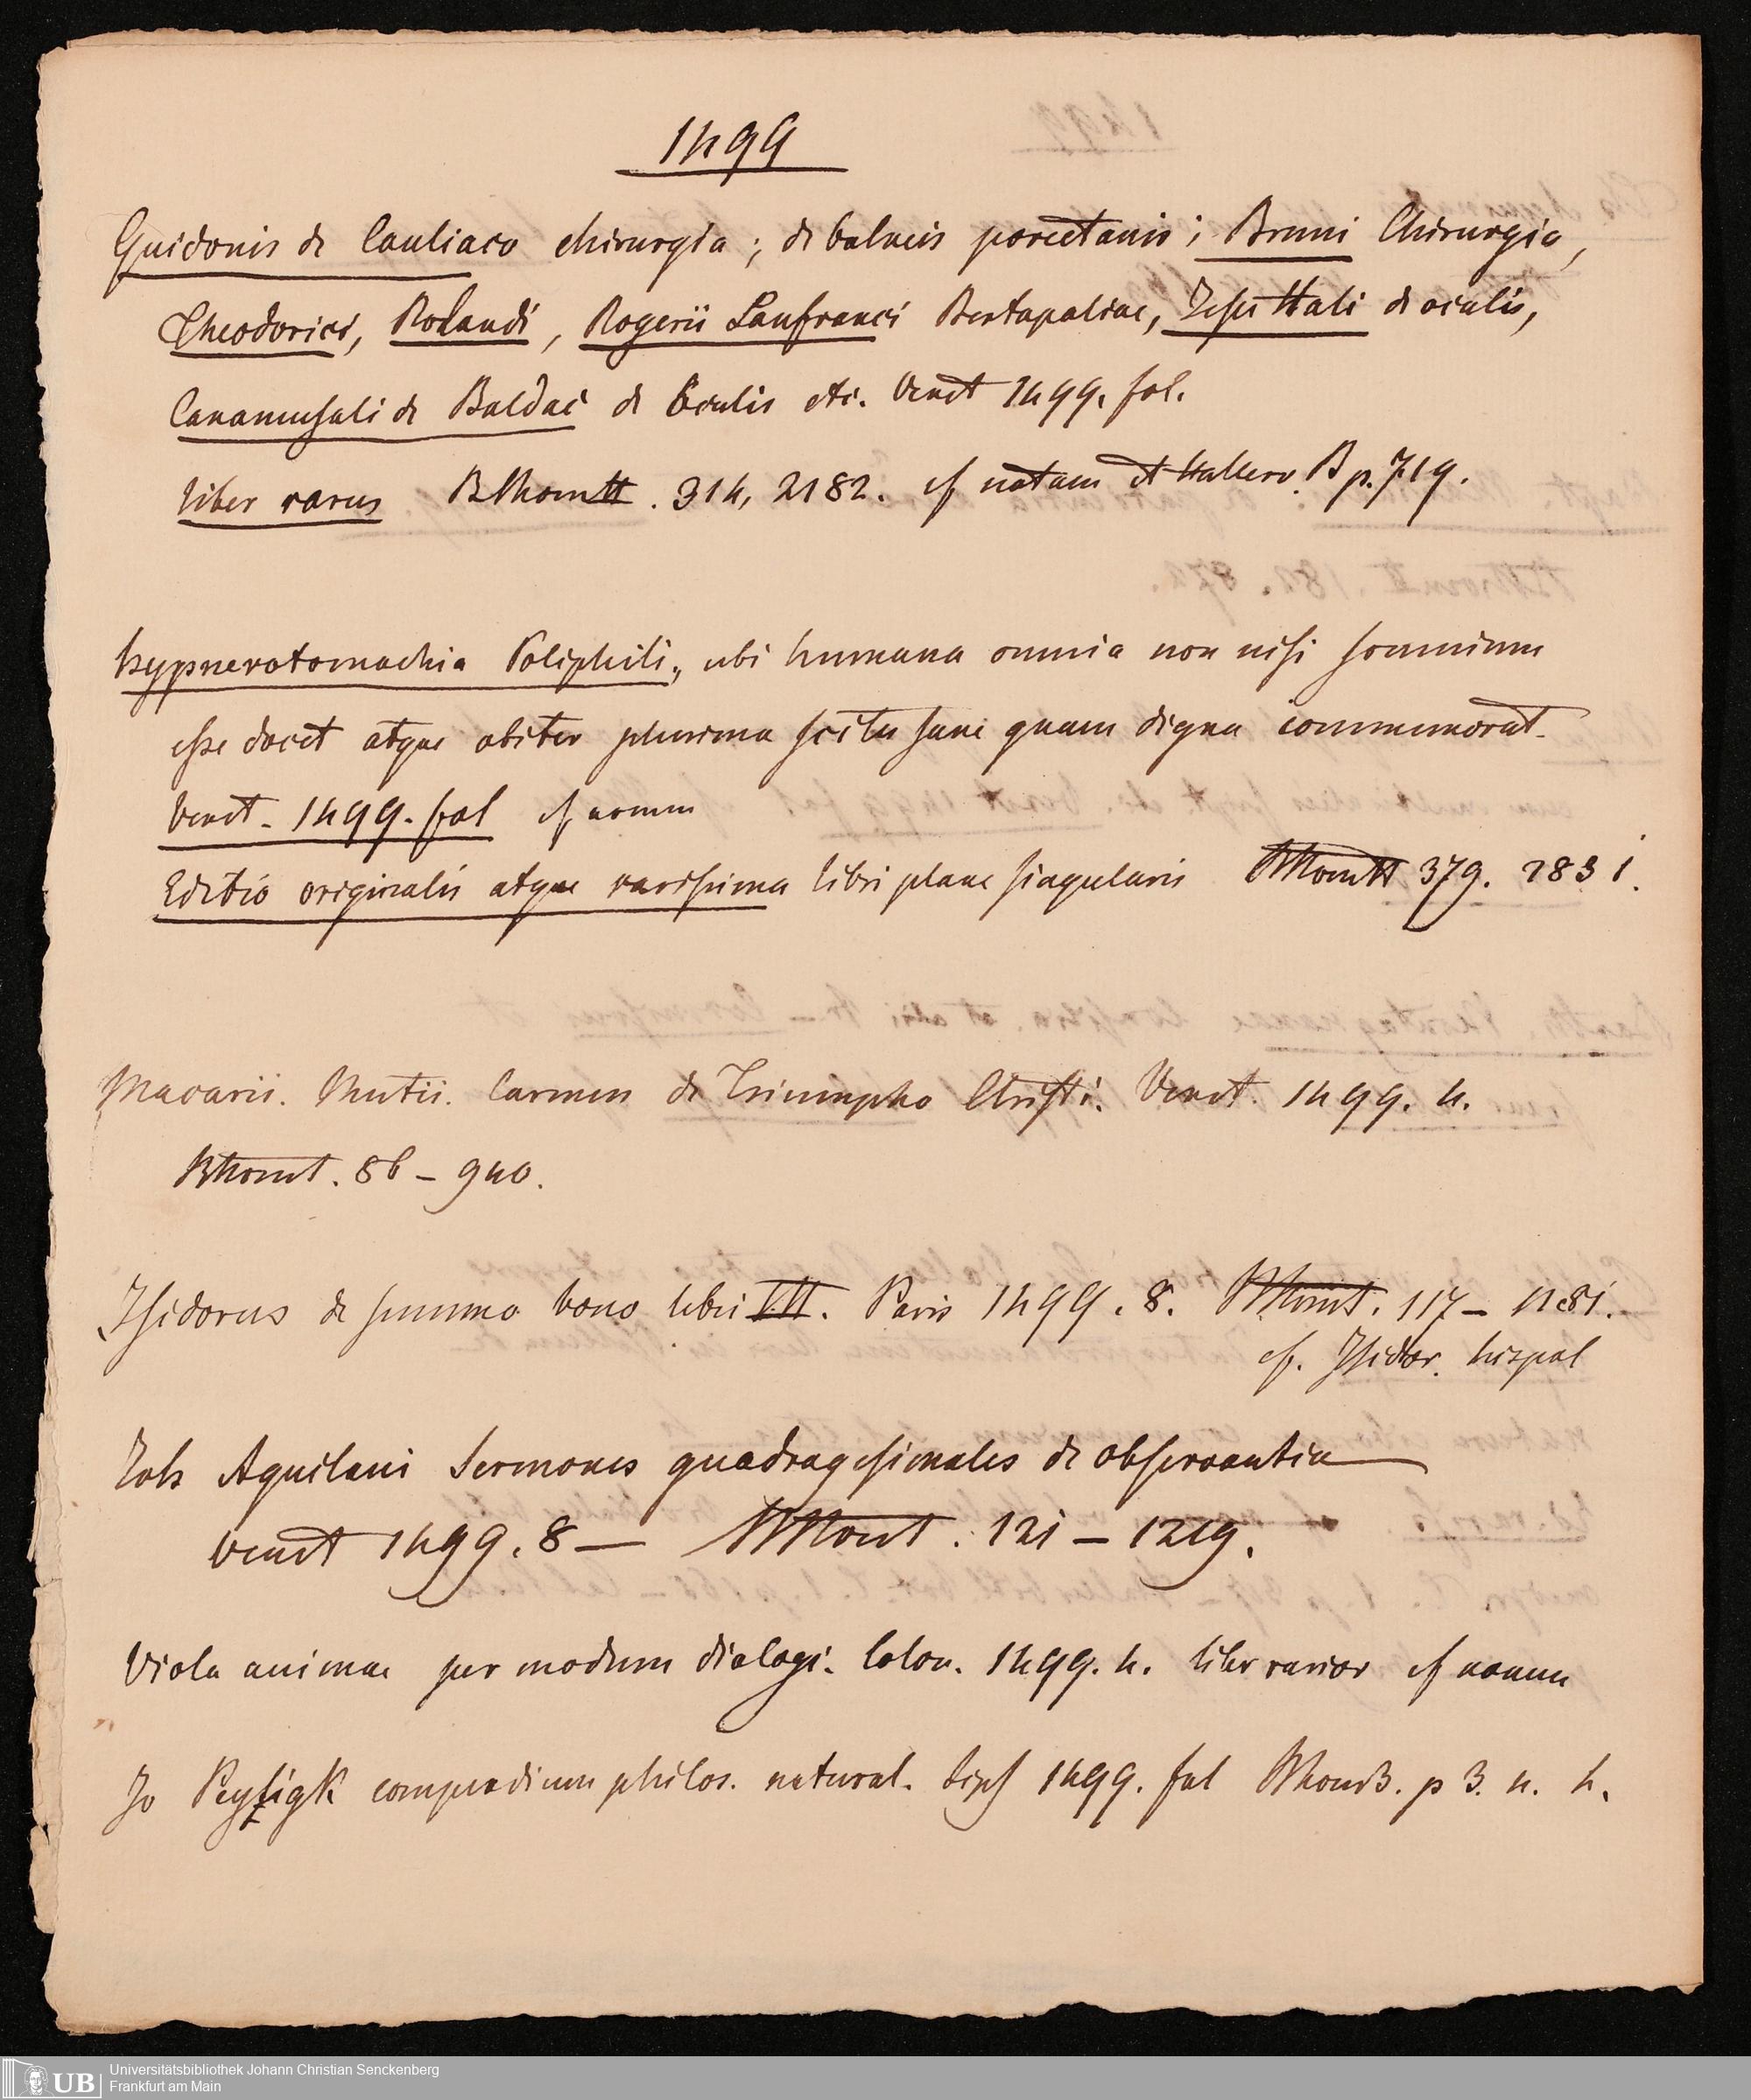 1499
Guidonis de Cauliaco chirurgia; de balneis porectanis; Bruni Chirurgia,
Theodorici, Rolandi, Rogerii Lanfranci Bertapaliae, Jesu Hali de oculis,
Canamusali de Baldac de Oculis etc. Venet 1499. fol.
liber rarus BThom II. 314, 2182. cf notam et Hallero. B p. 719.
hypnerotomachia Poliphili, ubi humana omnia non nisi somnium
esse docet atque obiter plurima scitu sane quam digna commemorat.
Venet. 1499. fol cf nomen
Editio originalis atque rarissima libri plane singularis 379. 2831.
Macarii. Mutii. Carmen de Triumpho Christi. Venet. 1499. 4.
BThom I. 86 – 940.
Isidorus de summo bono libri III. Paris 1499. 8. BThom I. 117 – 1181.
cf. Isidor. hispal
Joh Aquilani Sermones quadragesimales de observantia
Venet 1499. 8 — BThom I. 121 – 1219.
Viola animae per modum dialogi. Colon. 1499. 4. liber rarior cf nomen
Jo Peyligk compendium philos. natural. Lips 1499. fol p 3. n. 4.
Universitätsbibliothek Johann Christian Senckenberg
Frankfurt am Main
UB